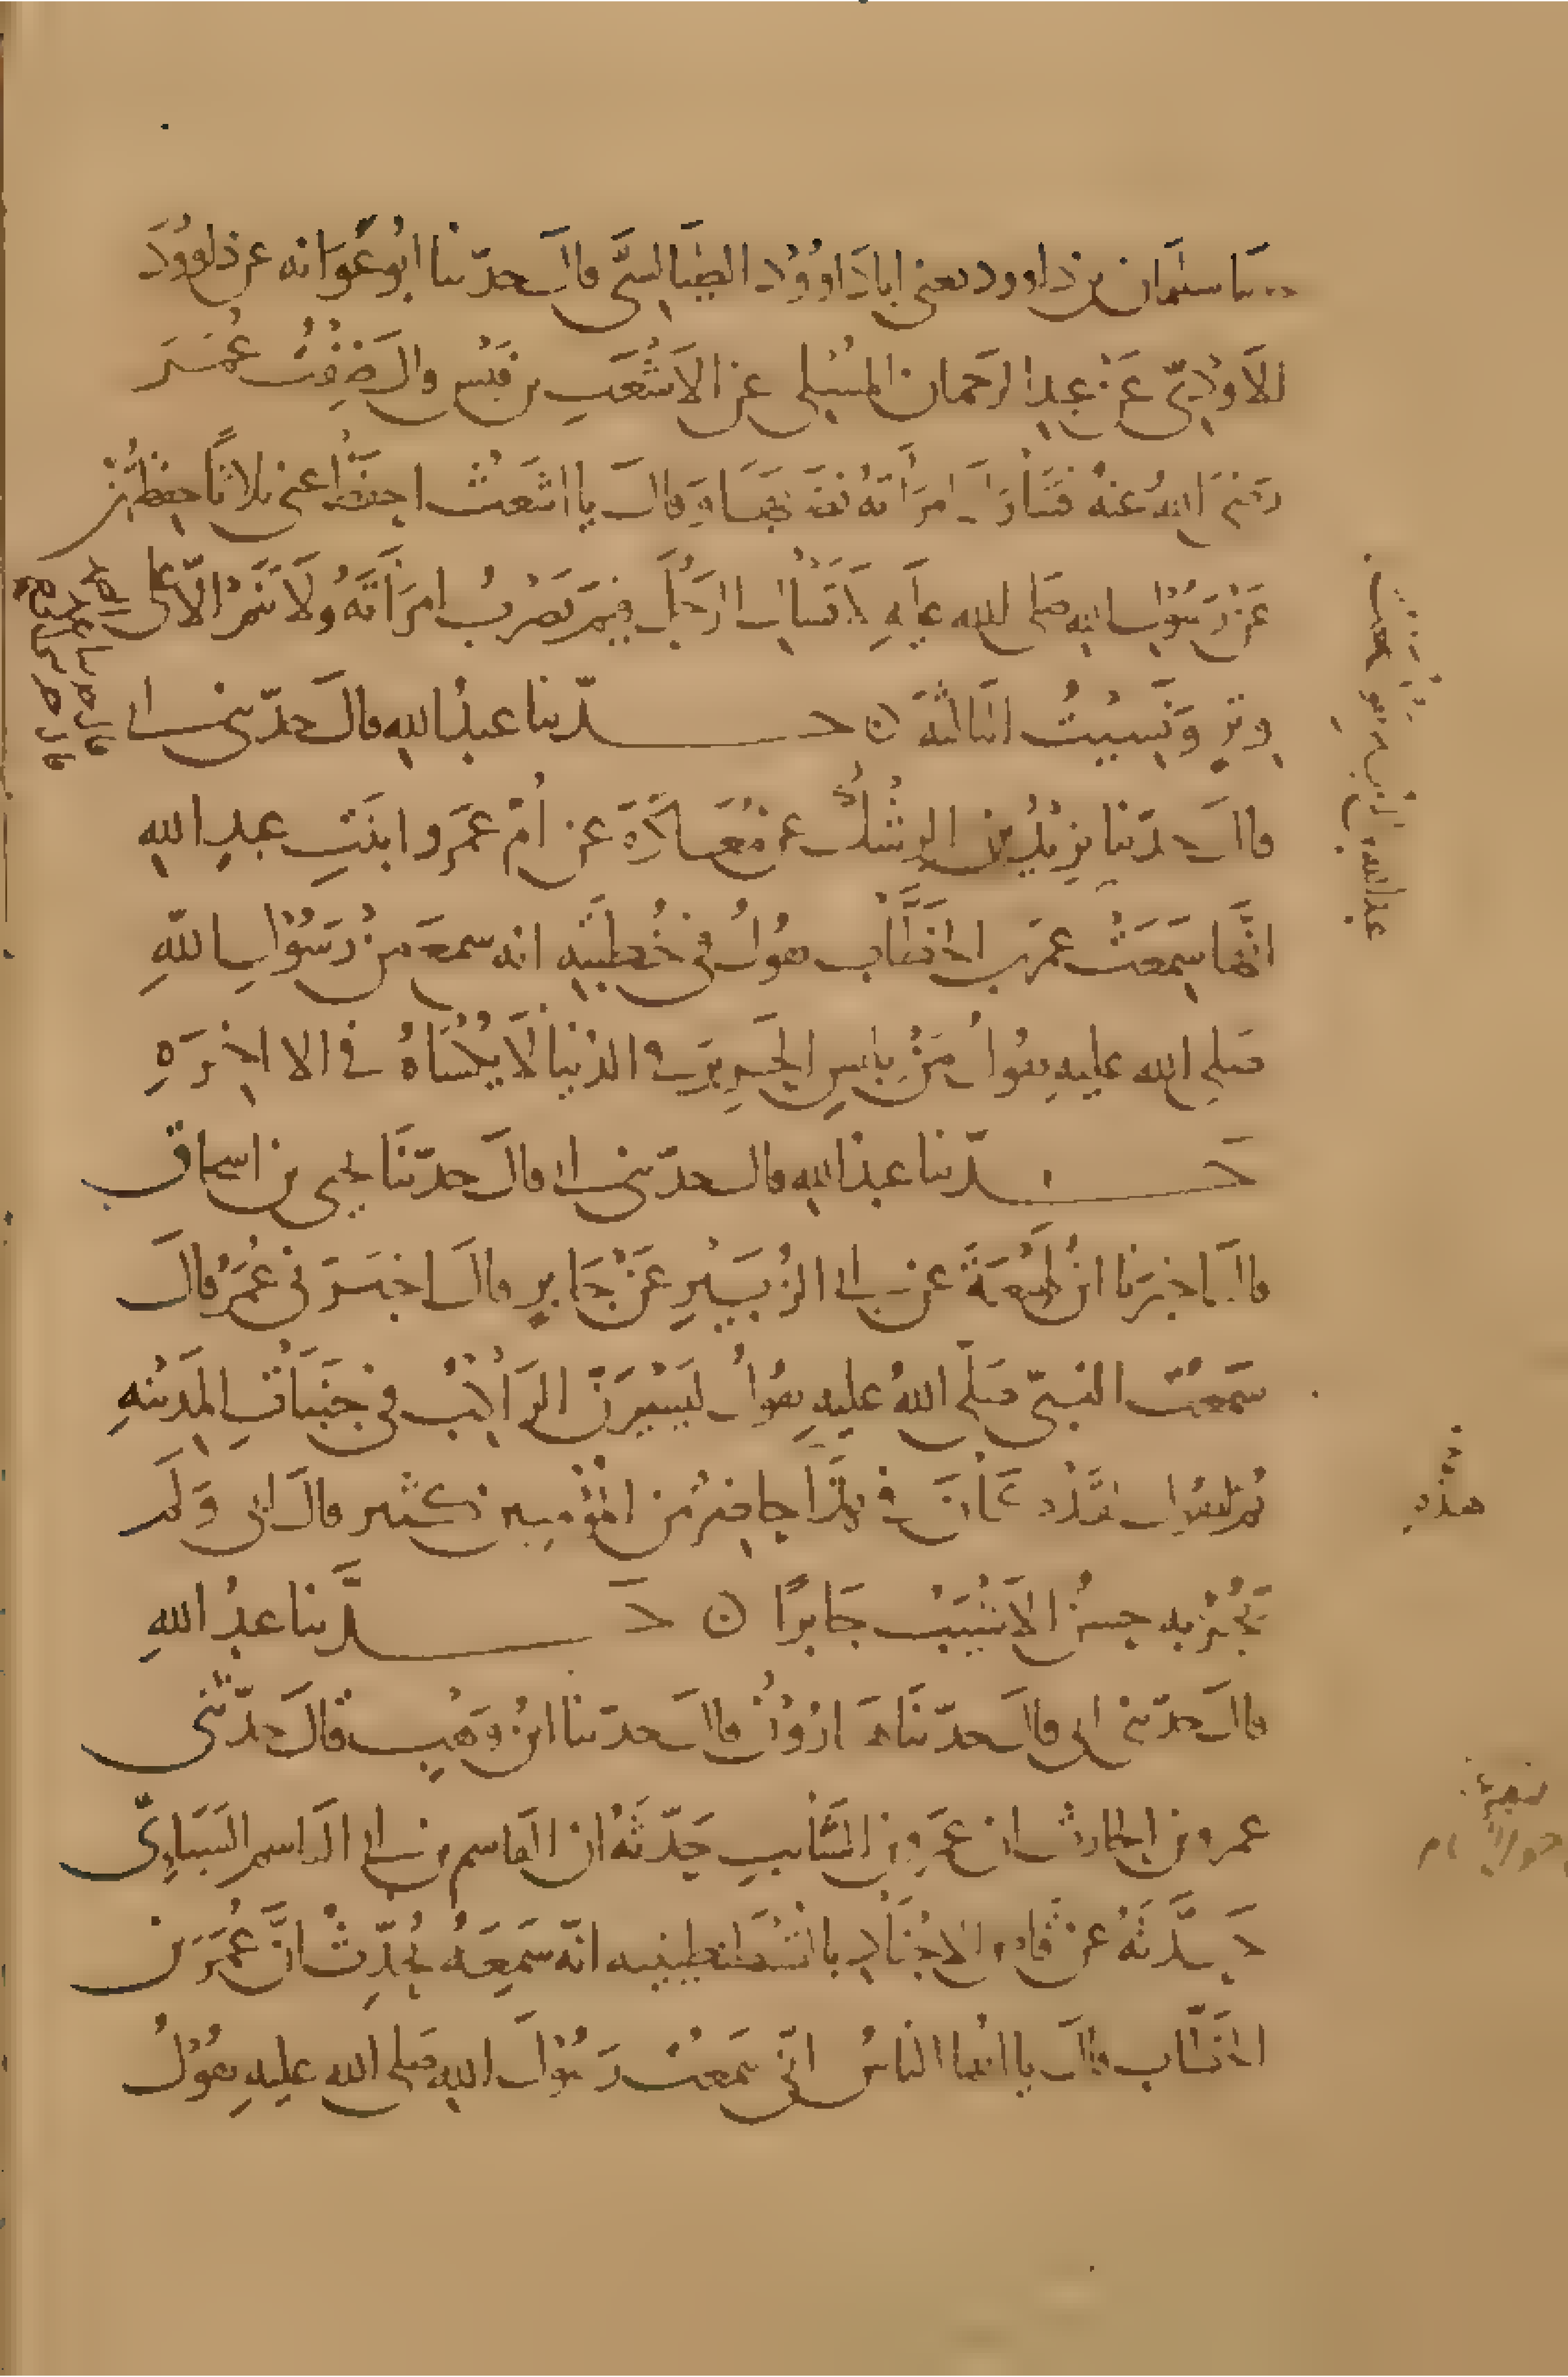 ـنا سليمان بن داوود يعني ابا داوود الطيالسي قال حدثنا ابو عوانة عن داوود
الاودي عن عبد الرحمان المسلي عن الاشعث بن قيس قال ضفت عمر
رضي الله عنه فتناول امراته فضربها وقال يا اشعث احفظ عني ثلاثا حفظتهن
عن رسول الله صلى الله عليه لا تسال الرجل فيم يضرب امراته ولا تنم الا على
وتر ونسيت الثالثة ن حـــدثنا عبد الله قال حدثني ابي
قال حدثنا يزيد بن الرشك عن معاذة عن ام عمرو ابنت عبد الله
انها سمعت عمر بن الخطاب يقول في خطبته انه سمع من رسول الله
صلى الله عليه يقول من يلبس الحرير في الدنيا لا يكساه في الاخرة
حـــدثنا عبد الله قال حدثني ابي قال حدثنا يحيى بن اسحاق
قال اخبرنا ابن لهيعة عن ابي الزبير عن جابر قال اخبرني عمر قال
سمعت النبي صلى الله عليه يقول ليسيرن الراكب في جنبات المدينة
ثم ليقول لقد كان في هذا حاضر من المؤمنين كثير قال ابي ولم
يجز به حسن الاشيب جابرا ن حـــدثنا عبد الله
قال حدثني ابي قال حدثنا هارون قال حدثنا ابن وهب قال حدثني
عمرو بن الحارث ان عمرو بن السائب حدثه ان القاسم بن ابي القاسم السبائي
حدثه عن قاص الاجناد بالقسطنطينية انه سمعه يحدث ان عمر بن
الخطاب قال يا ايها الناس اني سمعت رسول الله صلى الله عليه يقول
هذه